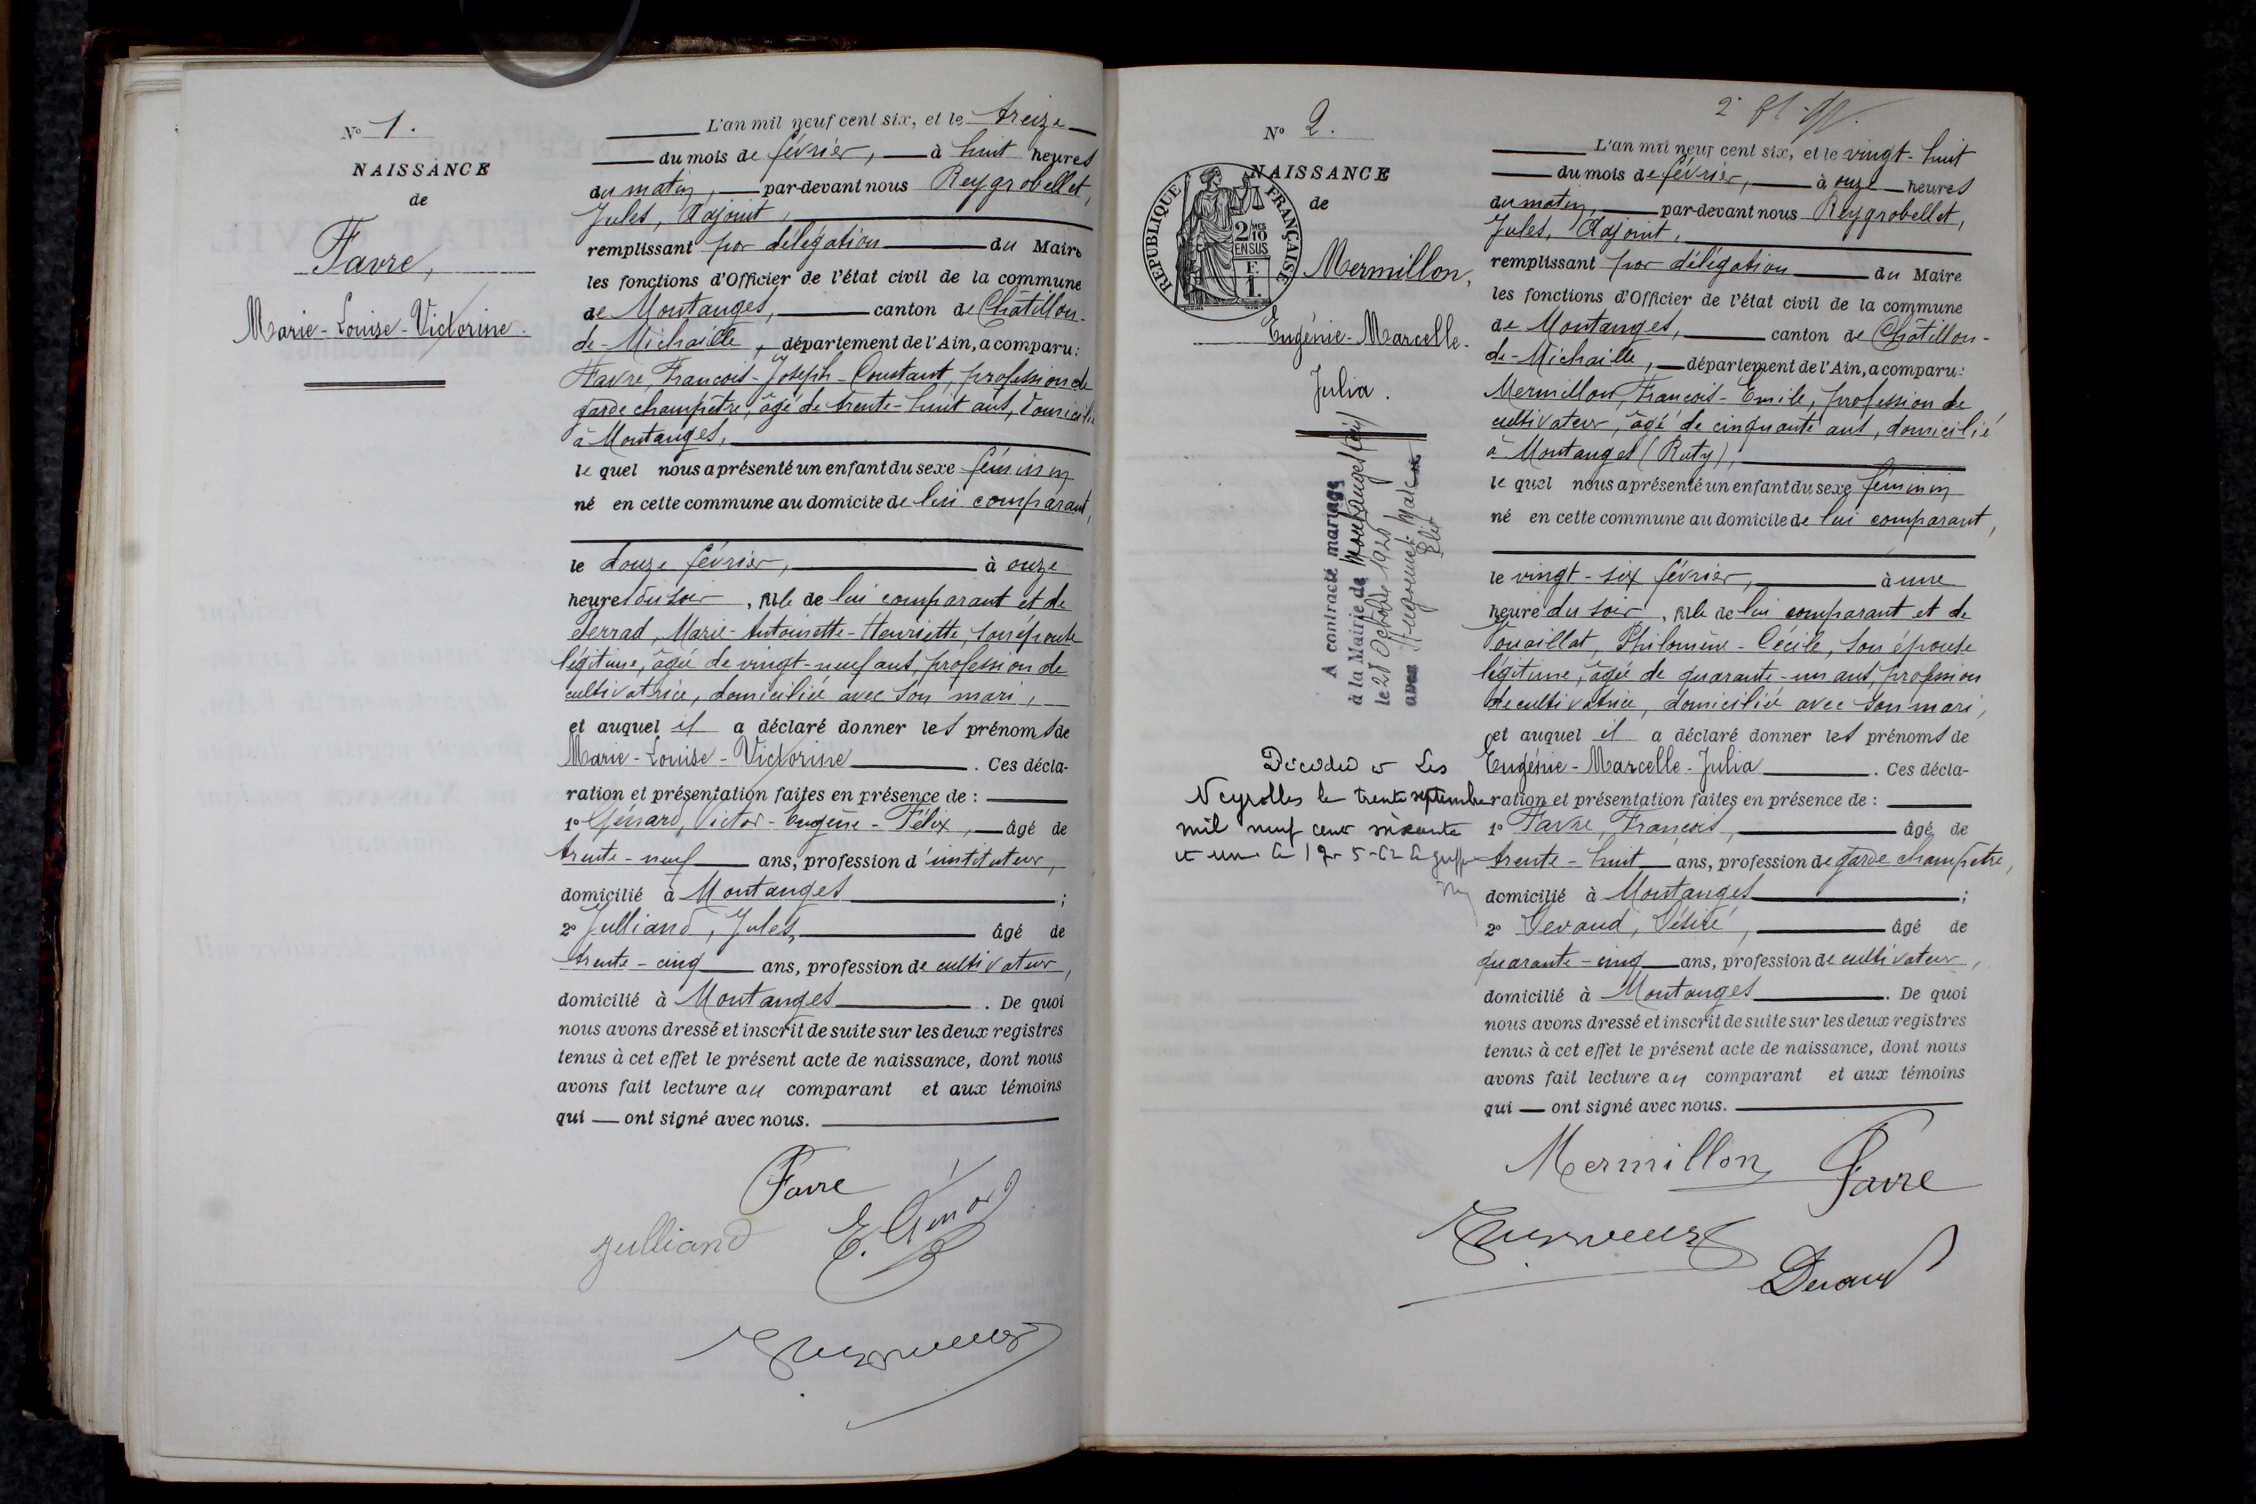 N° 1.
NAISSANCE
de
Favre,
Marie-Louise-Victorine.
L'an mil neuf cent six, et le treize
du mois de février, à huit heures
du matin, par-devant nous Reygrobellet,
Jules, Adjoint,
remplissant par délégation du Maire
les fonctions d'Officier de l'état civil de la commune
de Montanges, canton de Châtillon-
de-Michaille, département de l'Ain, a comparu:
Favre, François-Joseph-Constant, profession de
garde champêtre, âgé de trente-huit ans, domicilié
à Montanges,
le quel nous a présenté un enfant du sexe féminin
né en cette commune au domicile de lui comparant,
le douze février, à onze
heures du soir, fille de lui comparant et de
Serrad, Marie-Antoinette-Henriette, son épouse
légitime, âgée de vingt-neuf ans, profession de
cultivatrice, domiciliée avec son mari,
et auquel il a déclaré donner les prénoms de
Marie-Louise-Victorine. Ces décla-
ration et présentation faites en présence de:
1° Génard, Victor-Eugène-Félix, âgé de
trente-neuf ans, profession d'instituteur,
domicilié à Montanges;
2° Julliand, Jules, âgé de
trente-cinq ans, profession de cultivateur,
domicilié à Montanges. De quoi
nous avons dressé et inscrit de suite sur les deux registres
tenus à cet effet le présent acte de naissance, dont nous
avons fait lecture au comparant et aux témoins
qui ont signé avec nous.
Favre
Julliand E. Génard
N° 2.
NAISSANCE
de
REPUBLIQUE FRANÇAISE
2 MES
10
EN SUS
Mermillon,
Eugénie-Marcelle-
Julia.
A contracté mariage
à la Mairie de Montanges (Ain)
le 25 Octobre 1925
avec
Décédée à Les
Neyrolles le trente septembre
mil neuf cent soixante
et un
L'an mil neuf cent six, et le vingt-huit
du mois de février, à onze heures
du matin, par-devant nous Reygrobellet,
Jules, Adjoint,
remplissant par délégation du Maire
les fonctions d'Officier de l'état civil de la commune
de Montanges, canton de Châtillon-
de-Michaille, département de l'Ain, a comparu:
Mermillon, François-Emile, profession de
cultivateur, âgé de cinquante ans, domicilié
à Montanges (Ruty),
le quel nous a présenté un enfant du sexe féminin
né en cette commune au domicile de lui comparant,
le vingt-six février, à une
heure du soir, fille de lui comparant et de
Vouaillat, Philomène-Cécile, son épouse
légitime, âgée de quarante-un ans, profession
de cultivatrice, domiciliée avec son mari,
et auquel il a déclaré donner les prénoms de
Eugénie-Marcelle-Julia. Ces décla-
ration et présentation faites en présence de:
1° Favre, François, âgé de
trente-huit ans, profession de garde champêtre,
domicilié à Montanges;
2° Devaud, Désiré, âgé de
quarante-cinq ans, profession de cultivateur,
domicilié à Montanges. De quoi
nous avons dressé et inscrit de suite sur les deux registres
tenus à cet effet le présent acte de naissance, dont nous
avons fait lecture au comparant et aux témoins
qui ont signé avec nous.
Mermillon Favre
Devaud